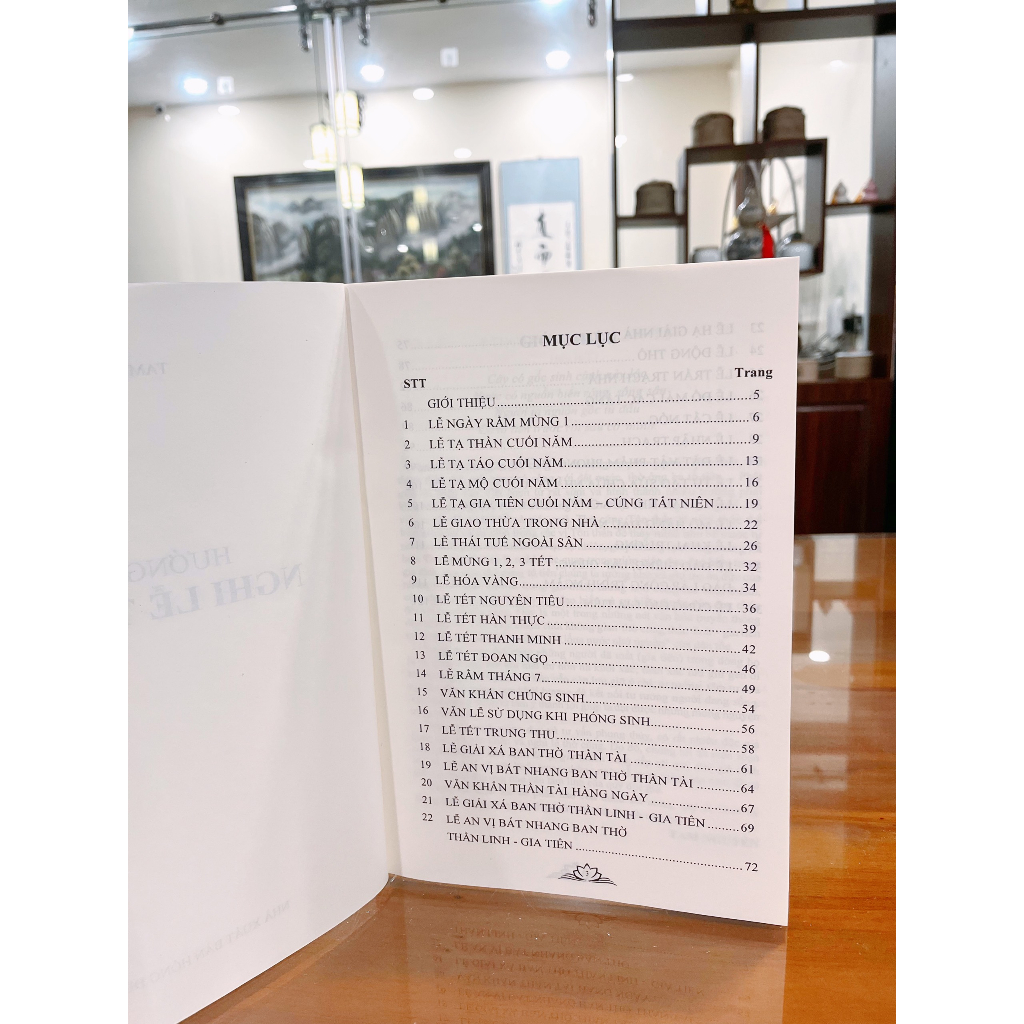 MỤC LỤC
STT Trang
GIỚI THIỆU 5
1 LỄ NGÀY RẰM MÙNG 1 6
2 LỄ TẠ THẦN CUỐI NĂM 9
3 LỄ TẠ TÁO CUỐI NĂM 13
4 LỄ TẠ MỘ CUỐI NĂM 16
5 LỄ TẠ GIA TIÊN CUỐI NĂM – CÚNG TẤT NIÊN 19
6 LỄ GIAO THỪA TRONG NHÀ 22
7 LỄ THÁI TUẾ NGOÀI SÂN 26
8 LỄ MÙNG 1, 2, 3 TẾT 32
9 LỄ HÓA VÀNG 34
10 LỄ TẾT NGUYÊN TIÊU 36
11 LỄ TẾT HÀN THỰC 39
12 LỄ TẾT THANH MINH 42
13 LỄ TẾT ĐOAN NGỌ 46
14 LỄ RẰM THÁNG 7 49
15 VĂN KHẤN CHÚNG SINH 54
16 VĂN LỄ SỬ DỤNG KHI PHÓNG SINH 56
17 LỄ TẾT TRUNG THU 58
18 LỄ GIẢI XÁ BAN THỜ THẦN TÀI 61
19 LỄ AN VỊ BÁT NHANG BAN THỜ THẦN TÀI 64
20 VĂN KHẤN THẦN TÀI HÀNG NGÀY 67
21 LỄ GIẢI XÁ BAN THỜ THẦN LINH - GIA TIÊN 69
22 LỄ AN VỊ BÁT NHANG BAN THỜ
THẦN LINH - GIA TIÊN 72